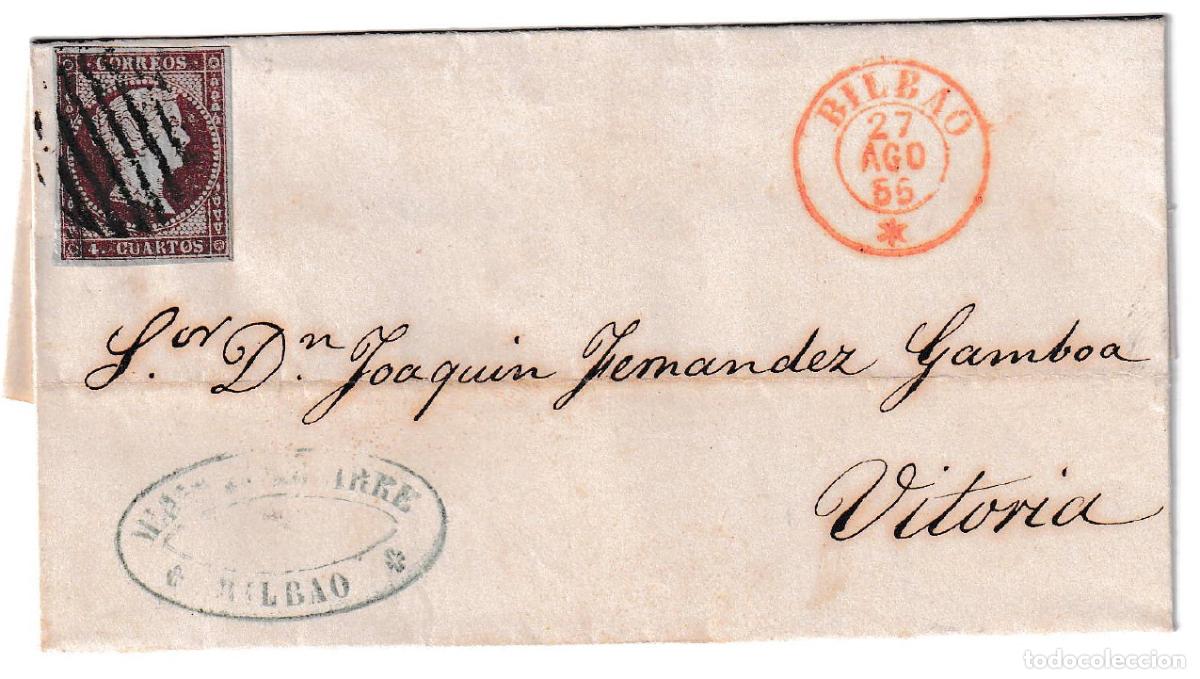 CORREOS
4. CUARTOS
BILBAO
27
AGO
56
S.or D.n Joaquin Fernandez Gamboa
Vitoria
BILBAO
todocoleccion